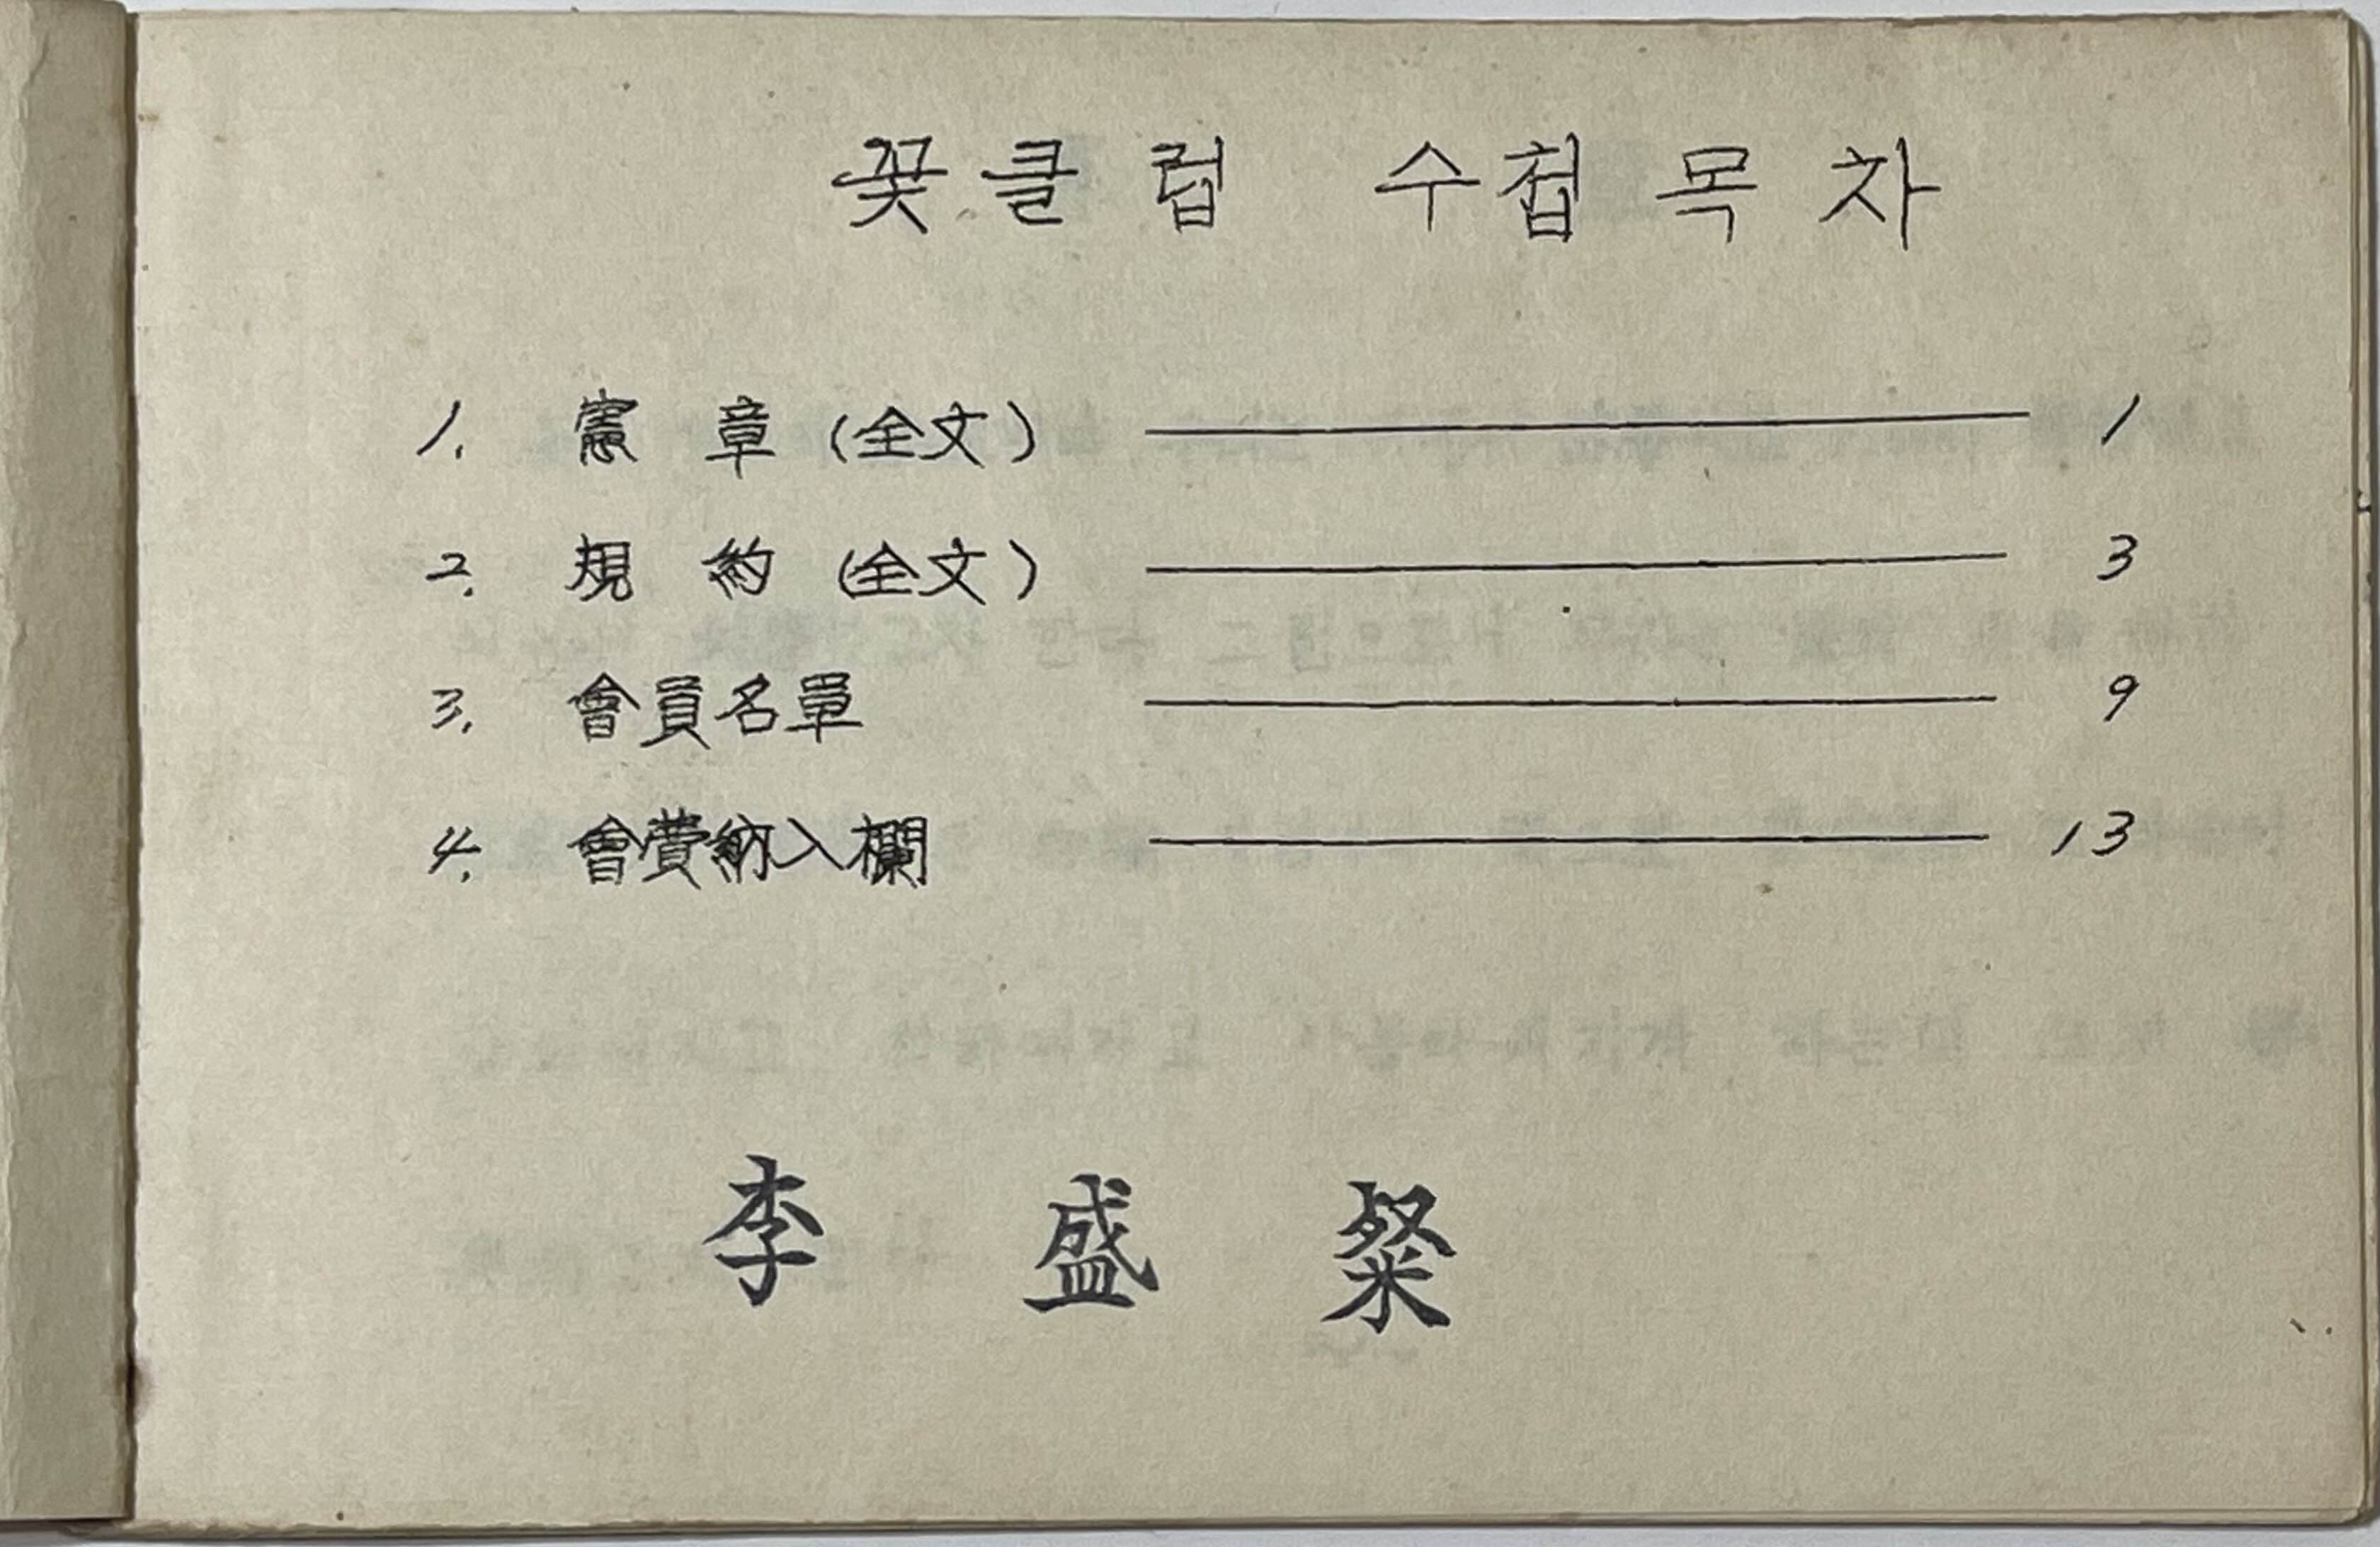 꽃클럽 수첩목차
1. 憲章(全文) ——— 1
2. 規約(全文) ——— 3
3. 會員名單 ——— 9
4. 會費納入欄 ——— 13
李盛粲